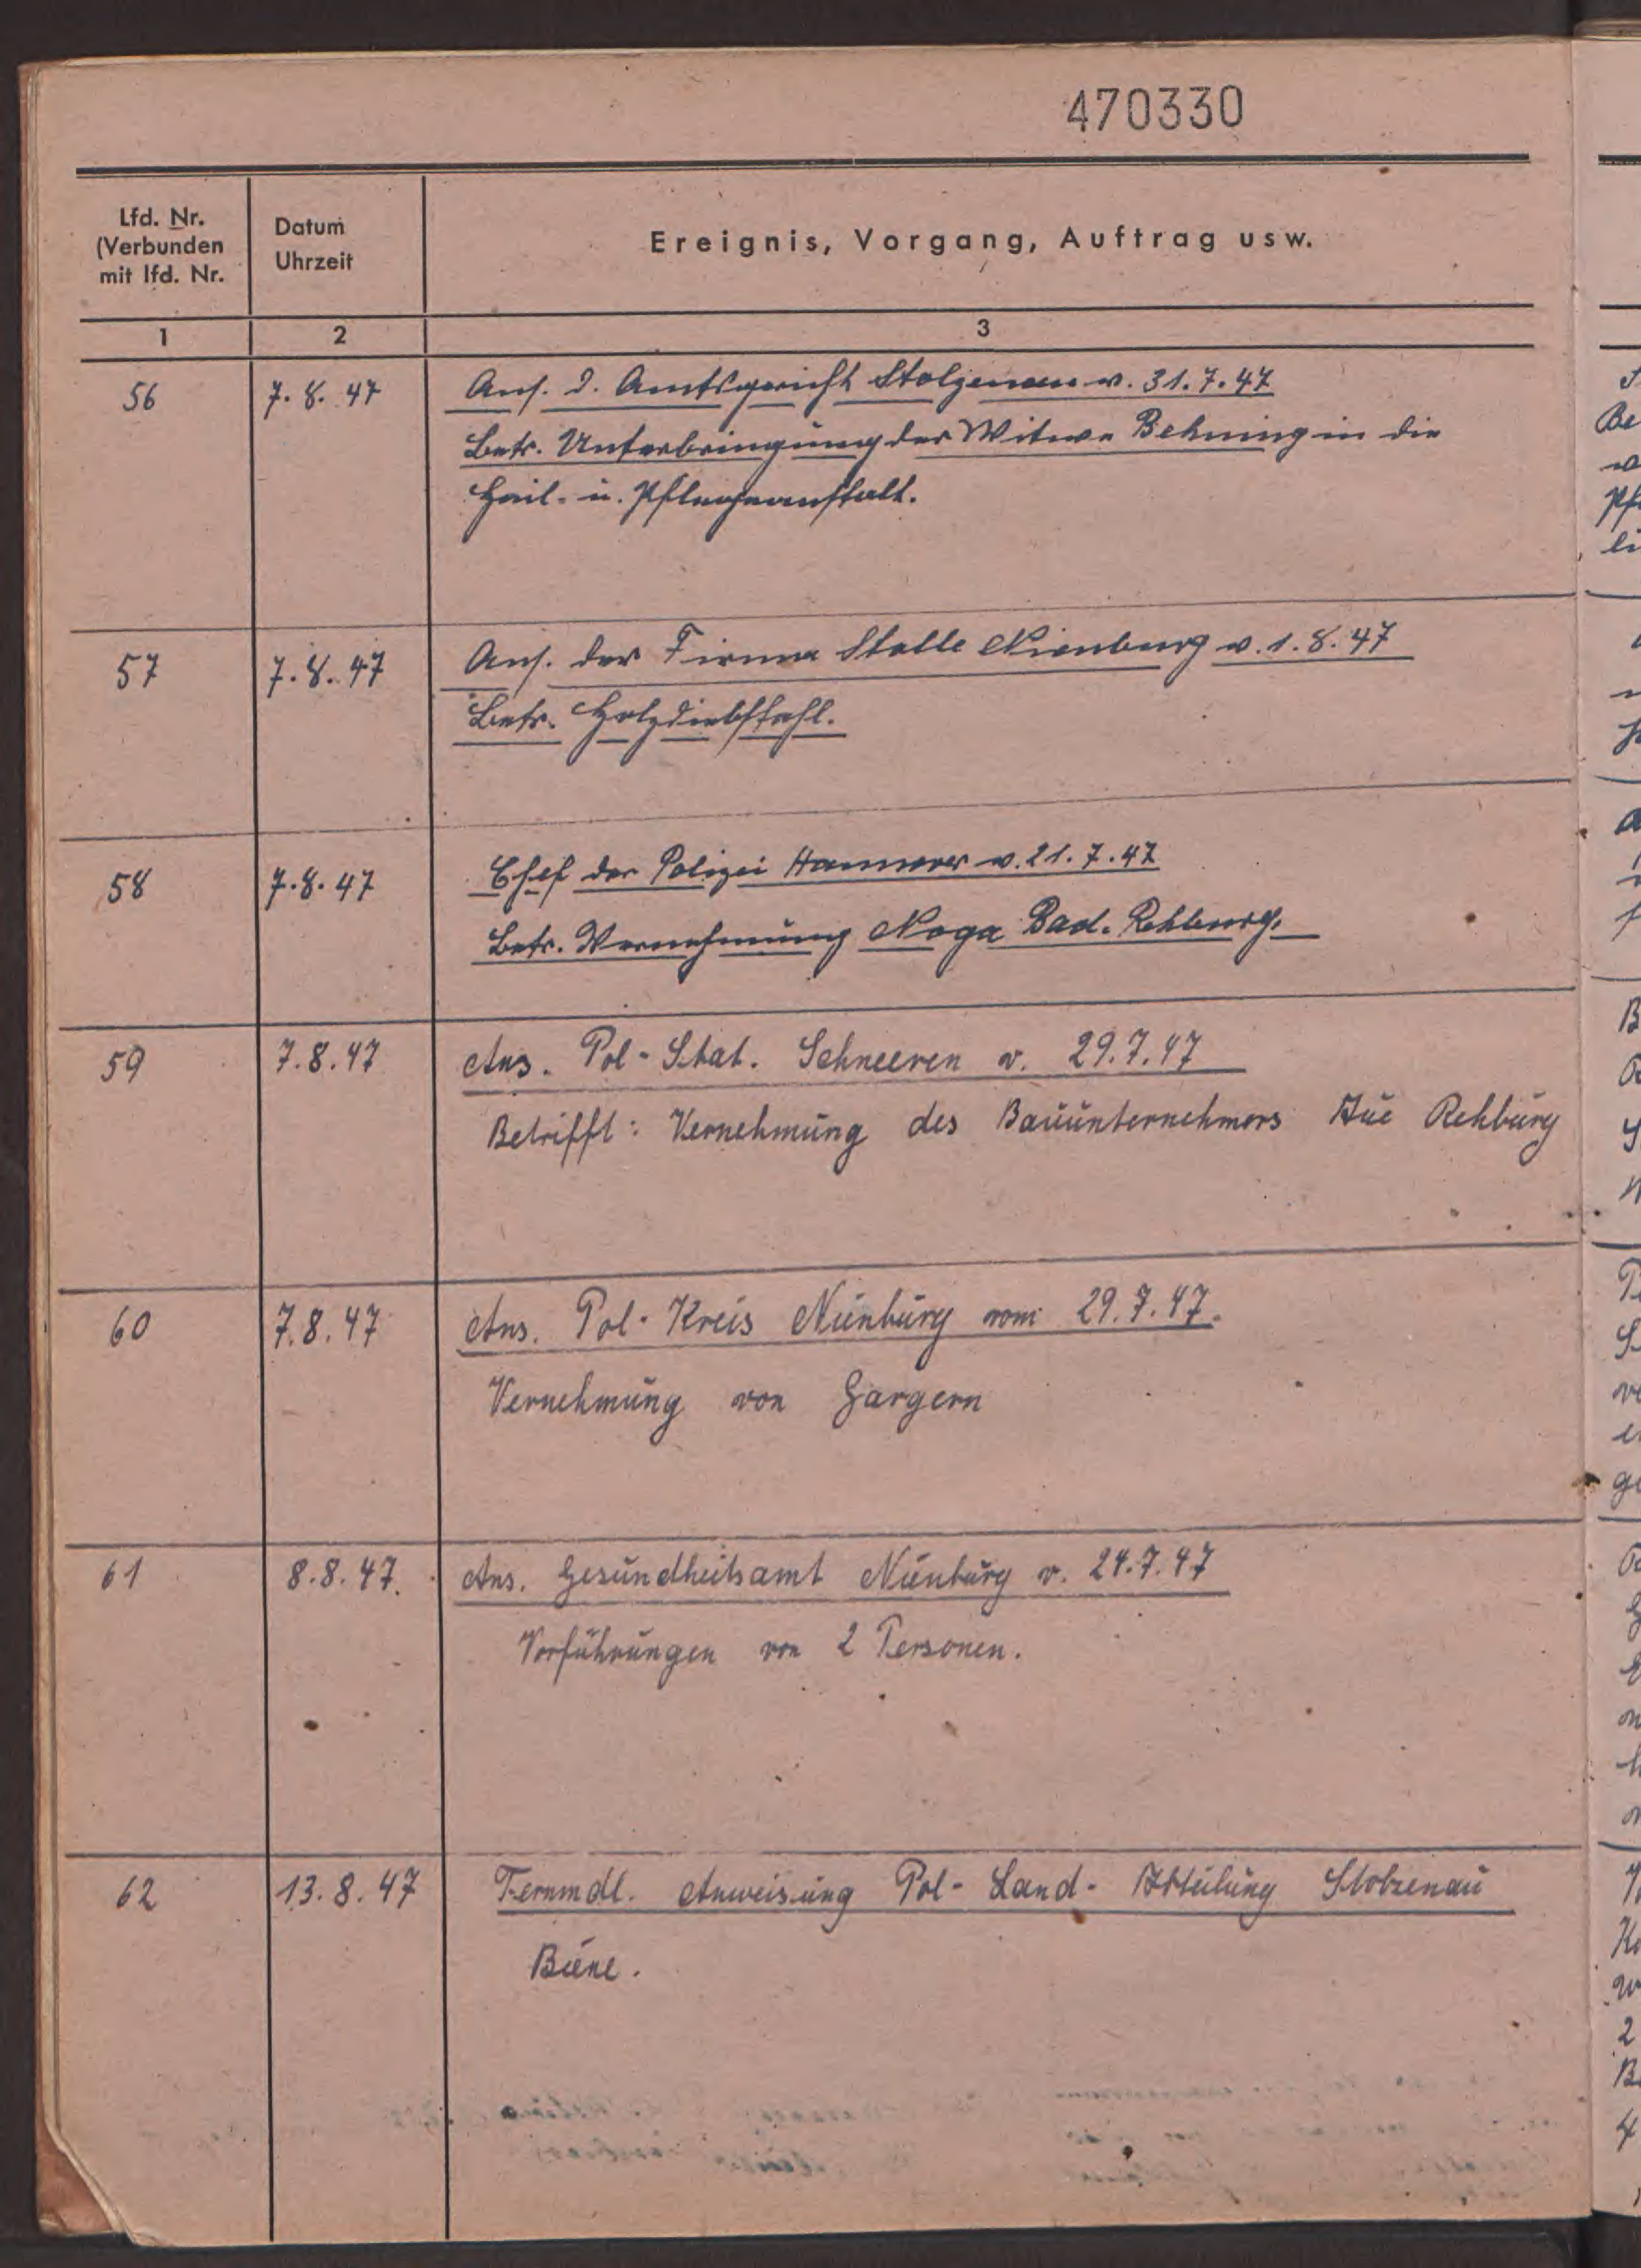 470330
Lfd. Nr.
(Verbunden
mit lfd. Nr.
Datum
Uhrzeit
Ereignis, Vorgang, Auftrag usw.
1 2 3
56 7.8.47 Ans. d. Amtsgericht Stolzenau v. 31.7.47
Betr. Unterbringung der Witwe Behning in die
Heil- u. Pflegeanstalt.
57 7.8.47 Ans. der Firma Stolle Nienburg v. 1.8.47
Betr. Holzdiebstahl.
58 7.8.47 Chef der Polizei Hannover v. 21.7.47
Betr. Vernehmung Noga Bad. Rehburg.
59 7.8.47 Ans. Pol-Stat. Schneeren v. 29.7.47
Betrifft: Vernehmung des Bauunternehmers Rehburg
60 7.8.47 Ans. Pol-Kreis Nienburg vom 29.7.47.
Vernehmung von Gargern
61 8.8.47. Ans. Gesundheitsamt Nienburg v. 24.7.47
Vorführungen von 2 Personen.
62 13.8.47 Fernmdl. Anweisung Pol-Land-Abteilung Stolzenau